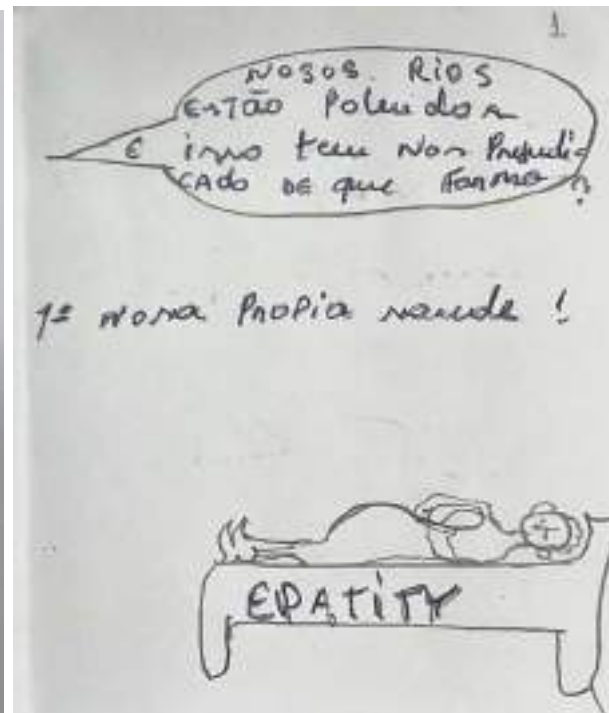 1.
NOSOS RIOS
ESTÃO Poluidos
E isso tem Nos Prejudi-
CADO DE que FORMA ?
1º nossa PROPIA saude !
EPATITY